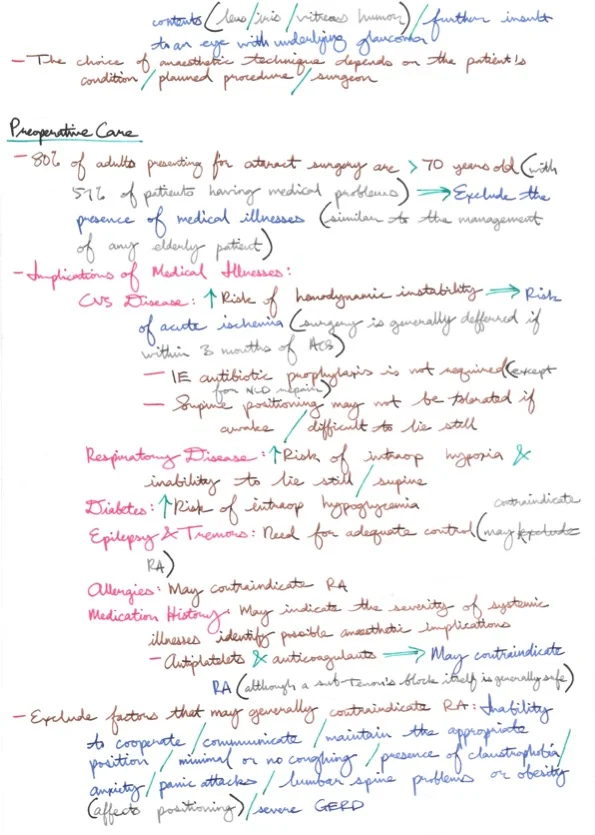 contents (lens/iris/vitreous humor)/further insult
to an eye with underlying glaucoma
- The choice of anaesthetic technique depends on the patient's
condition/planned procedure/surgeon
Preoperative Care
- 80% of adults presenting for ataract surgery are > 70 years old (with
57% of patients having medical problems) → Exclude the
presence of medical illnesses (similar to the management
of any elderly patient)
- Implications of Medical Illnesses:
CVS Disease: ↑ Risk of hemodynamic instability → Risk
of acute ischemia (surgery is generally deffered if
within 3 months of ACS)
- IE antibiotic prophylaxis is not required (except
for NLD repair)
- Supine positioning may not be tolerated if
awake / difficult to lie still
Respiratory Disease: ↑ Risk of intraop hypoxia &
inability to lie still / supine
Diabetes: ↑ Risk of intraop hypoglycemia
contraindicate
Epilepsy & Tremors: Need for adequate control (may exclude
RA)
Allergies: May contraindicate RA
Medication History: May indicate the severity of systemic
illnesses identify possible anaesthetic implications
- Antiplatelets & anticoagulants → May contraindicate
RA (although a sub-Tenon's block itself is generally safe)
- Exclude factors that may generally contraindicate RA: Inability
to cooperate / communicate / maintain the appropriate
position / minimal or no coughing / presence of claustrophobia/
anxiety / panic attacks / lumbar spine problems or obesity
(affects positioning) / severe GERD